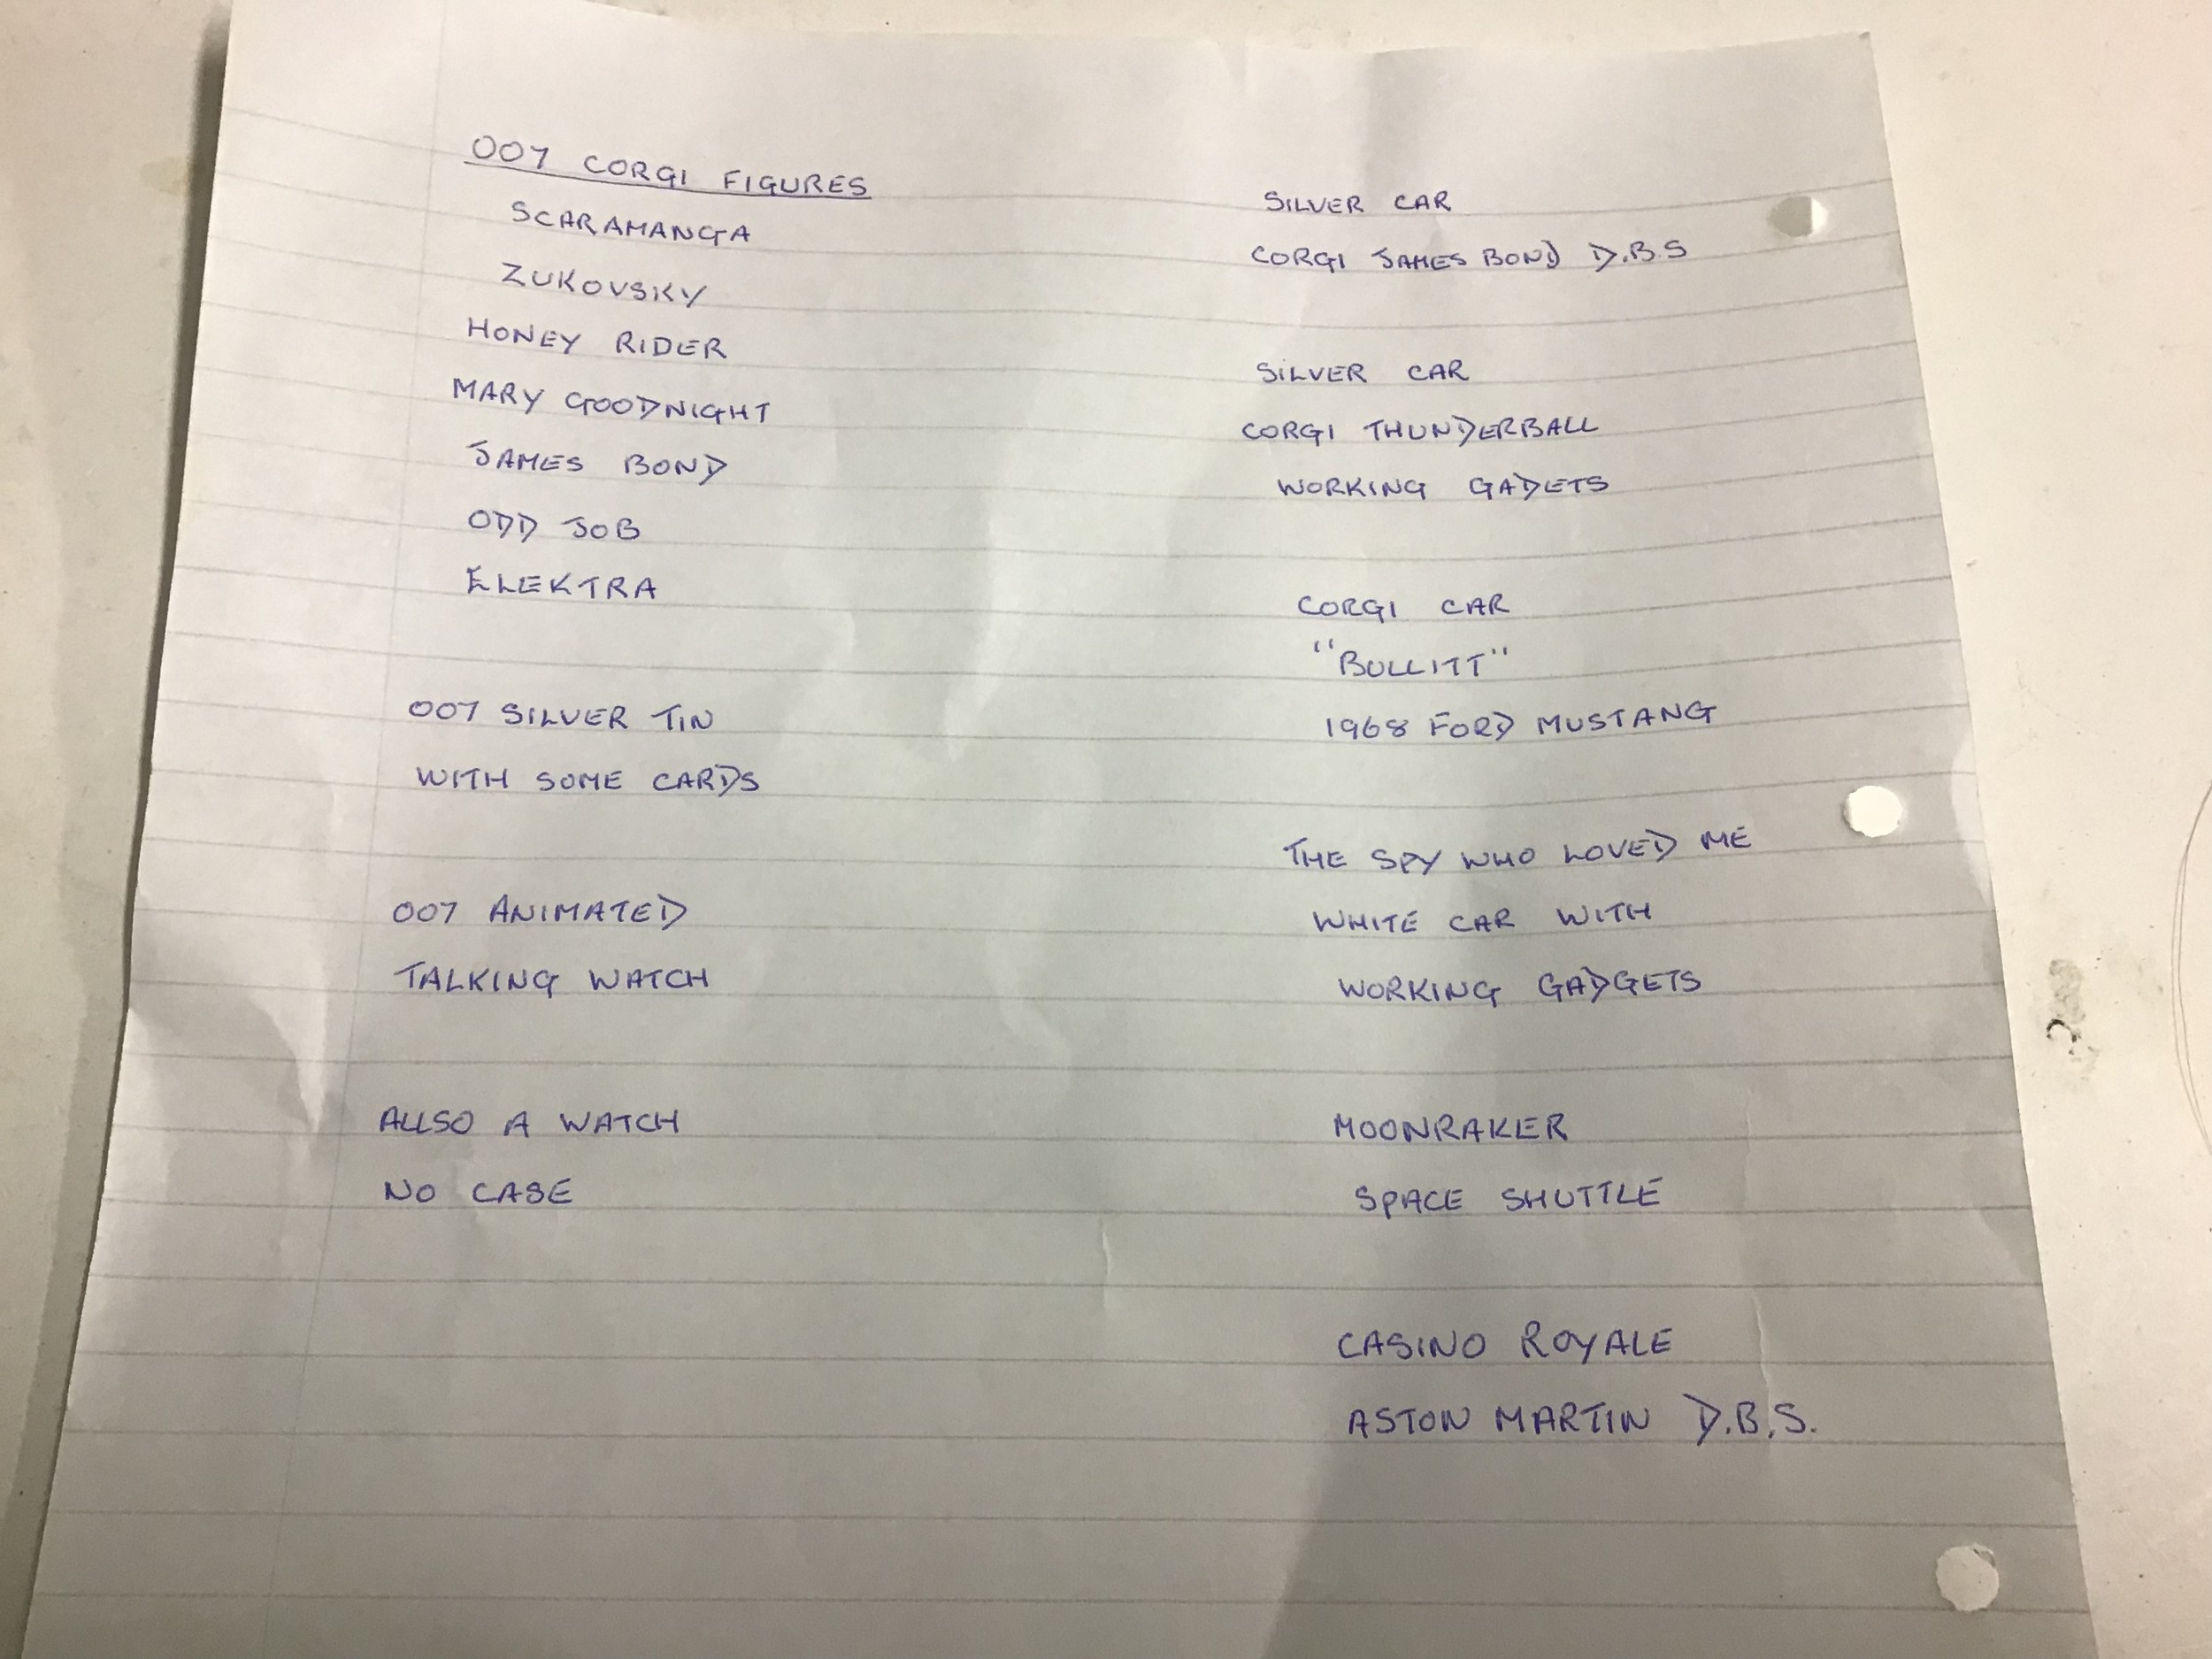 007 CORGI FIGURES
SCARAMANGA
ZUKOVSKY
HONEY RIDER
MARY GOODNIGHT
JAMES BOND
ODD JOB
ELEKTRA
007 SILVER TIN
WITH SOME CARDS
007 ANIMATED
TALKING WATCH
ALLSO A WATCH
NO CASE
SILVER CAR
CORGI JAMES BOND D.B.S
SILVER CAR
CORGI THUNDERBALL
WORKING GADETS
CORGI CAR
"BULLITT"
1968 FORD MUSTANG
THE SPY WHO LOVED ME
WHITE CAR WITH
WORKING GADGETS
MOONRAKER
SPACE SHUTTLE
CASINO ROYALE
ASTON MARTIN D.B.S.